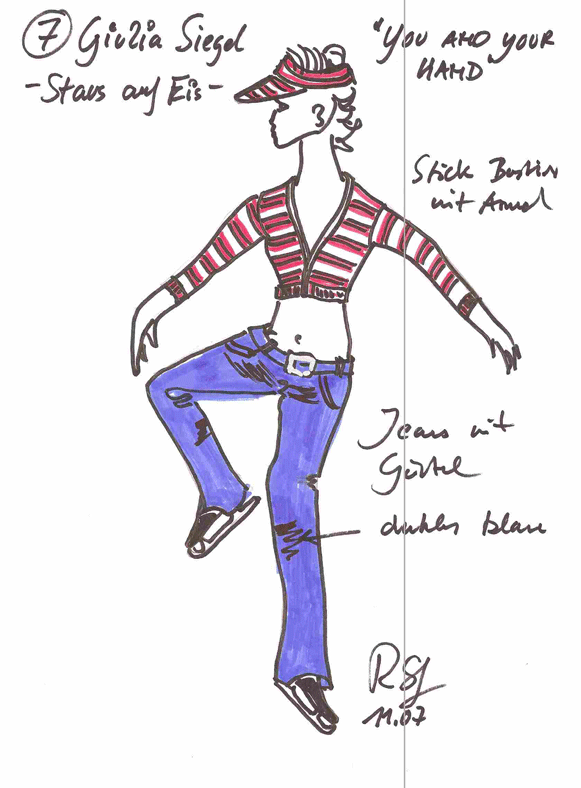 7 Giulia Siegel
- Stars auf Eis -
"YOU AND YOUR
HAND"
Strick
mit
Jeans mit
Gürtel
dunkles blau
11.07